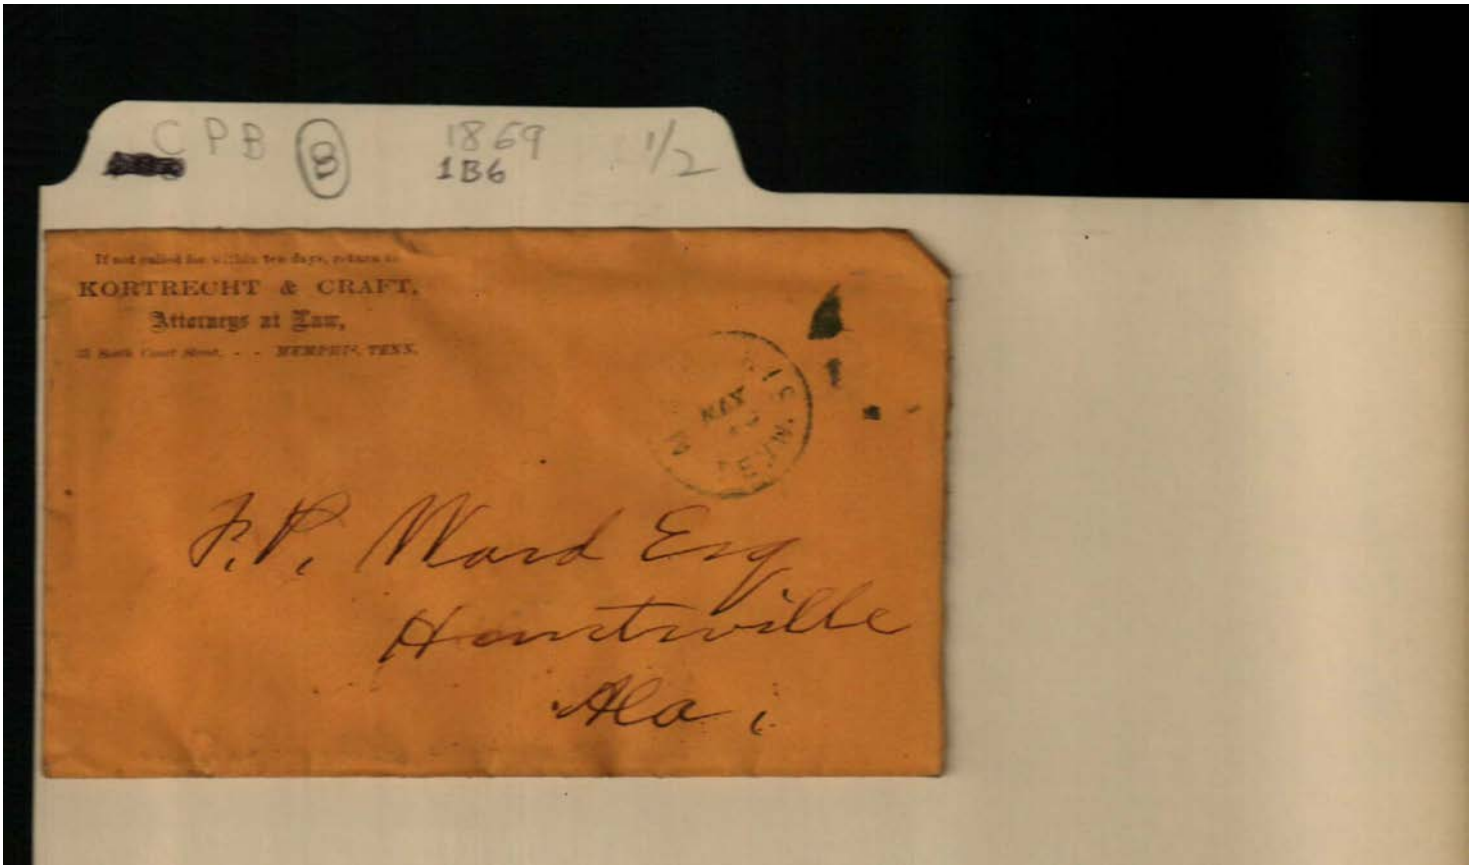 CPB B 1869 1/2
1B6
If not called for within ten days, return to
KORTRECHT & CRAFT,
Attorneys at Law,
Court Street, - - MEMPHIS, TENN.
MAY
TENN.
F. P. Ward Esq
Huntsville
Ala